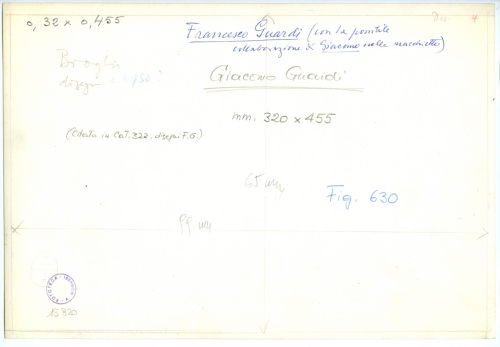 0,32 x 0,455
Francesco Guardi (con la possibile
collaborazione di Giacomo nelle macchiette)
Giacomo Guardi
disegni
mm. 320 x 455
(Citato in Cat. 322. disegni F.G.)
Fig. 630
FOTOTECA
15320